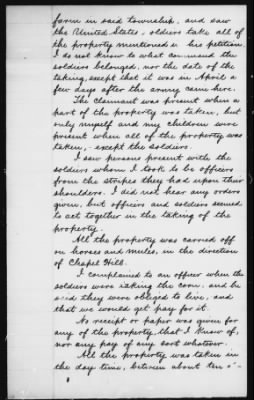 farm in said township, and saw
the United States, soldiers take all of
the property mentioned in his petition.
I do not know to what command the
soldiers belonged, nor the date of the
taking, except that it was in April a
few days after the army came here.
The claimant was present when a
part of the property was taken, but
only myself and my children were
present when all of the property was
taken, - except the soldiers.
I saw persons present with the
soldiers whom I took to be officers
from the stripes they had upon their
shoulders. I did not hear any orders
given, but officers and soldiers seemed
to act together in the taking of the
property.
All the property was carried off
on horses and mules, in the direction
of Chapel Hill.
I complained to an officer when the
soldiers were taking the corn, and he
said they were obliged to live, and
that we would get pay for it.
No receipt or paper was given for
any of the property, that I know of,
nor any pay of any sort whatever.
All the property was taken in
the day time, between about ten o'-